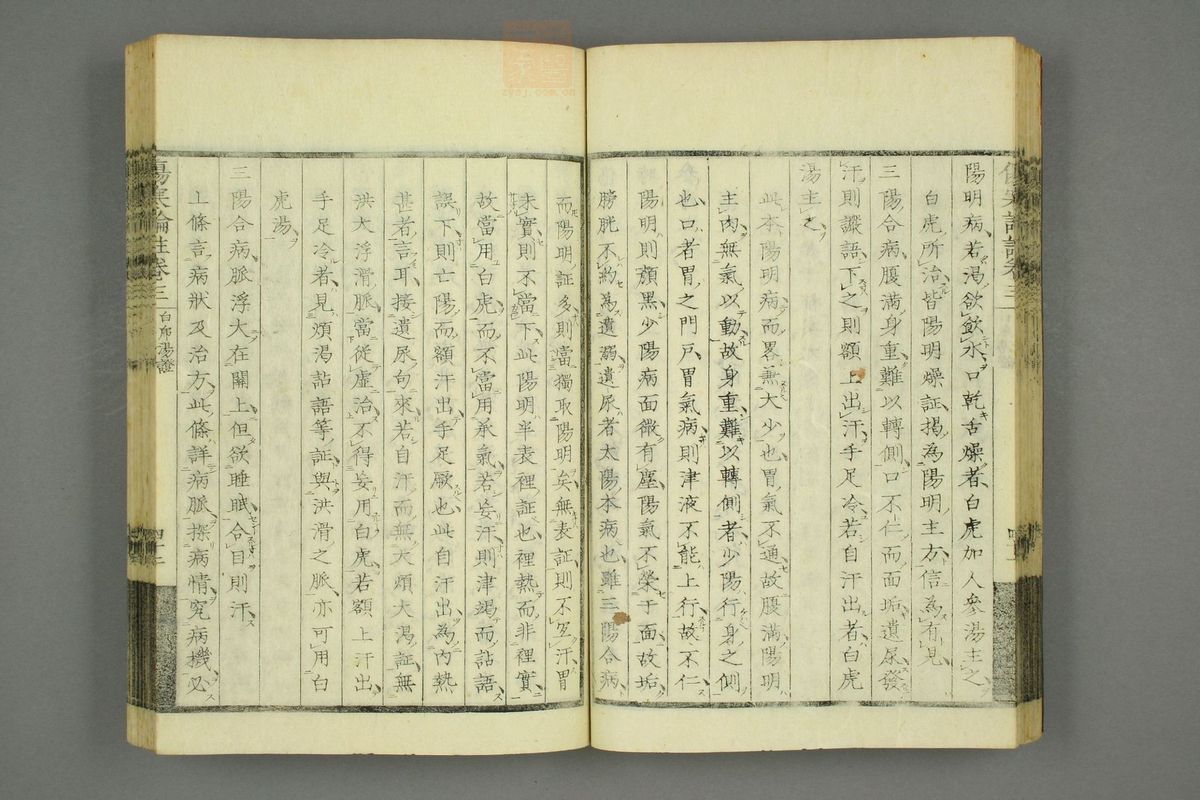 陽明病若渴欲飲水口乾舌燥者白虎加人參湯主之
白虎所治皆陽明燥証揭為陽明主方信為有見
三陽合病腹滿身重難以轉側口不仁而面垢遺尿發
汗則讝語下之則額上出汗手足冷若自汗出者白虎
湯主之
此本陽明病而畧兼太少也胃氣不通故腹滿陽明
主肉無氣以動故身重難以轉側者少陽行身之側
也口者胃之門戸胃氣病則津液不能上行故不仁
陽明則顏黑少陽病面微有塵陽氣不榮于面故垢
膀胱不約為遺溺遺尿者太陽本病也雖三陽合病
而陽明証多則當獨取陽明矣無表証則不宜汗胃
未實則不當下此陽明半表裡証也裡熱而非裡實
故當用白虎而不當用承氣若妄汗則津竭而詀語
誤下則亡陽而額汗出手足厥也此自汗出為內熱
甚者言耳接遺尿句來若自汗而無大煩大渴証無
洪大浮滑脈當從虛治不得妄用白虎若額上汗出
手足冷者見煩渴詀語等証與洪滑之脈亦可用白
虎湯
三陽合病脈浮大在關上但欲睡眠合目則汗
上條言病狀及治方此條詳病脈探病情究病機必
傷寒論註卷三
白虎湯證